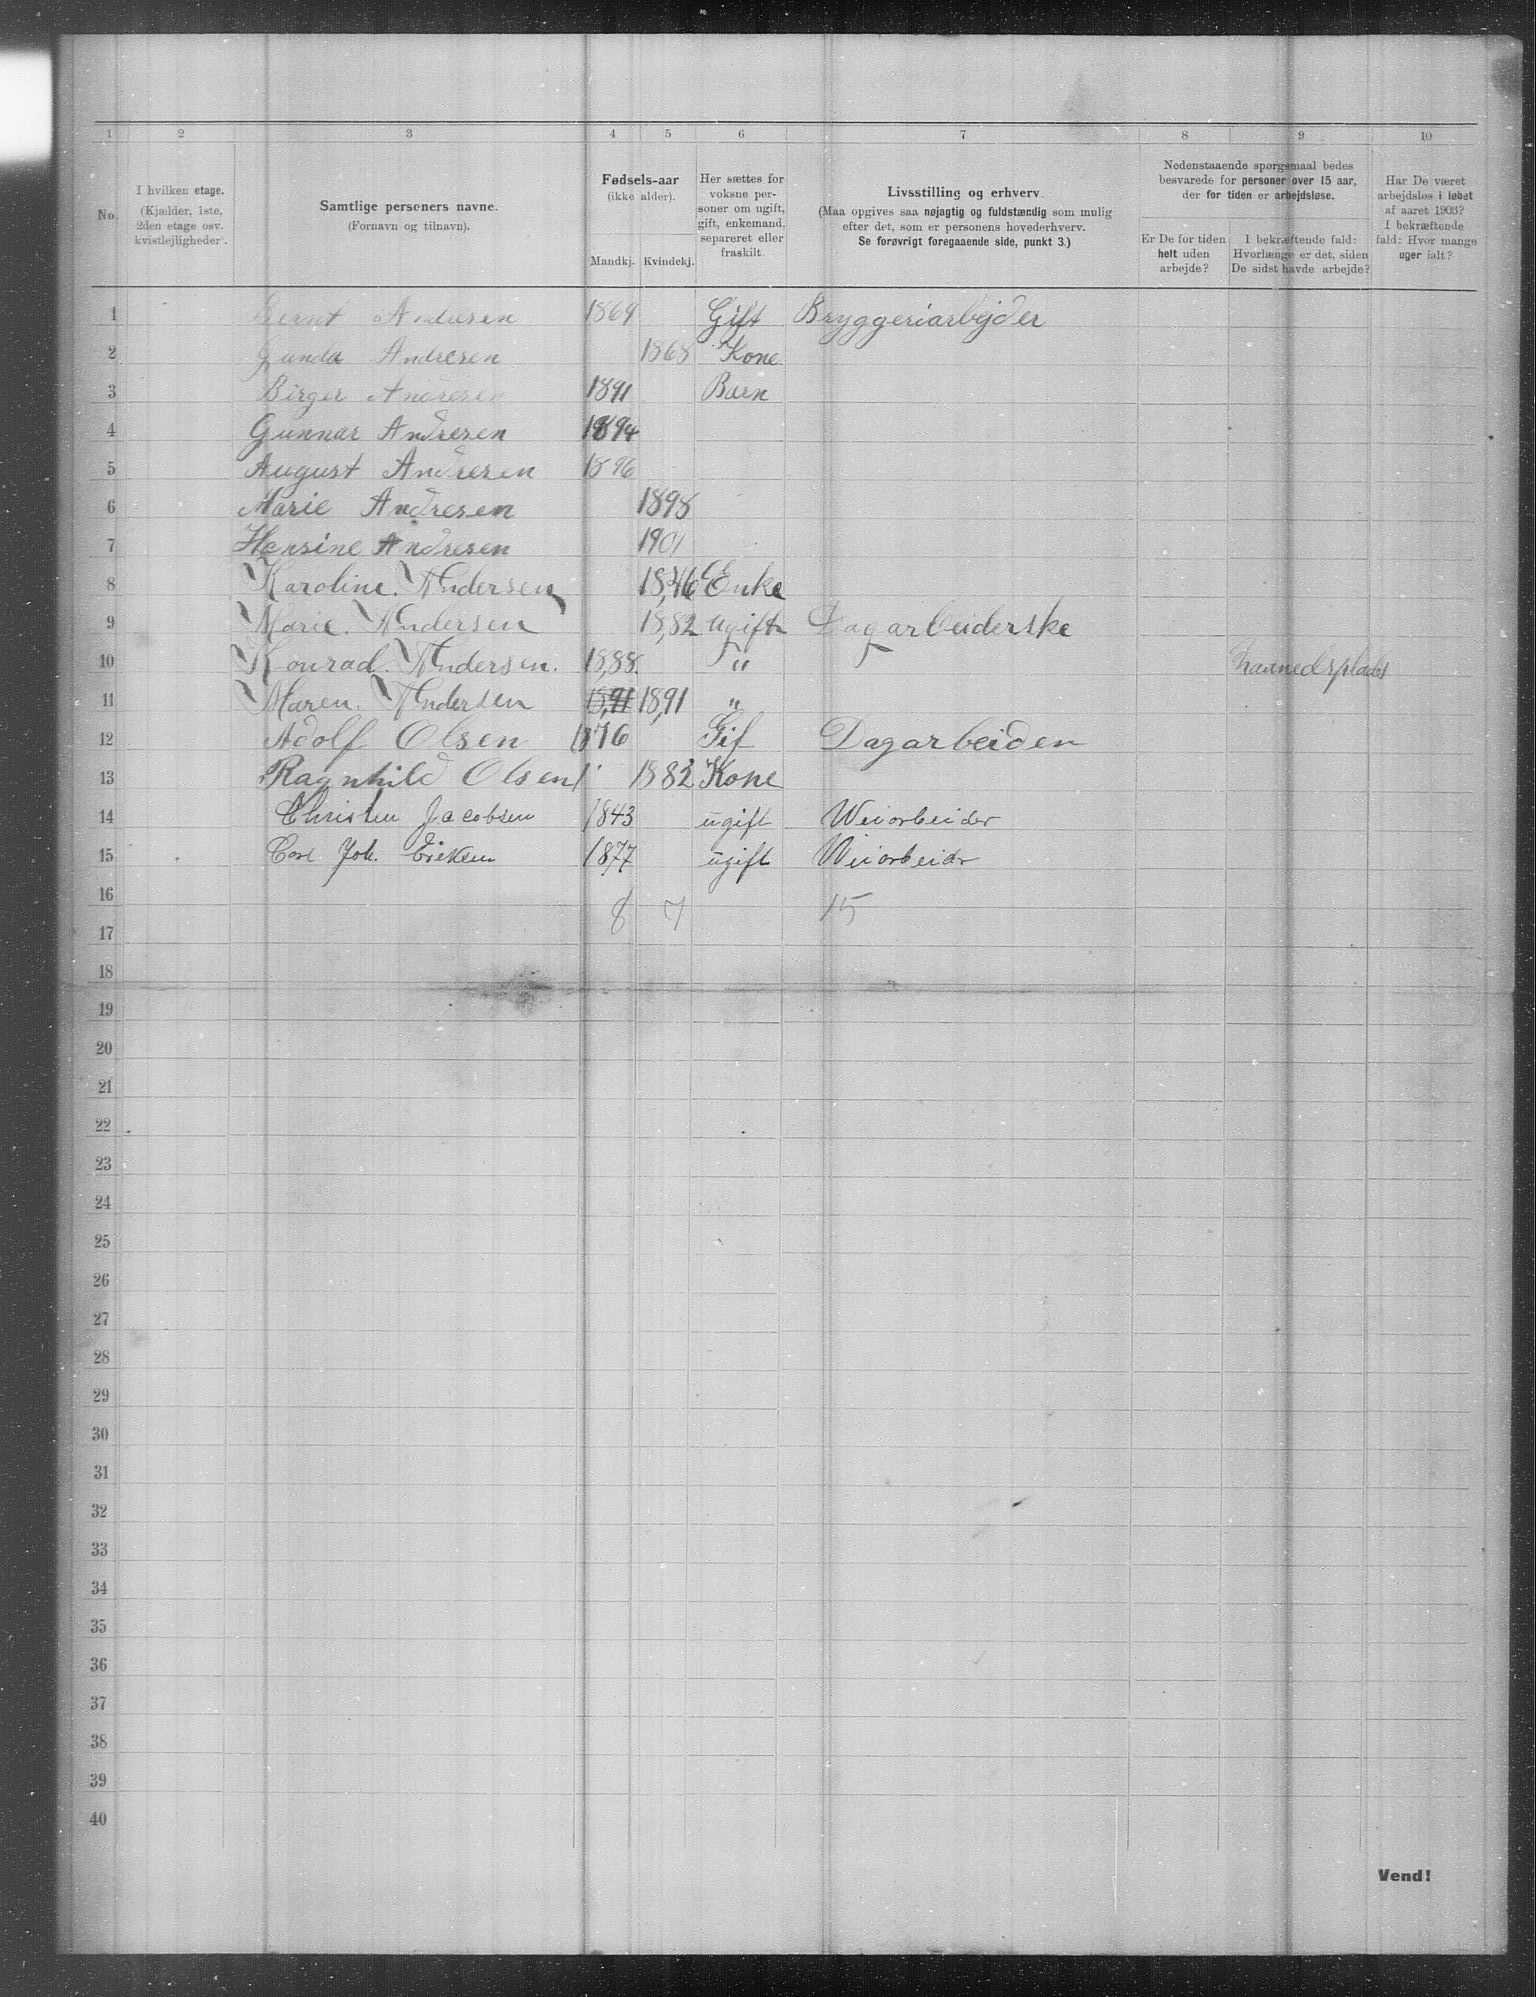 1 2 3 4 5 6 7 8 9 10
No.
I hvilken etage.
(Kjælder, 1ste,
2den etage osv.
kvistlejligheder).
Samtlige personers navne.
(Fornavn og tilnavn).
Fødsels-aar
(ikke alder).
Mandkj. Kvindekj.
Her sættes for
voksne per-
soner om ugift,
gift, enkemand,
separeret eller
fraskilt.
Livsstilling og erhverv.
(Maa opgives saa nøjagtig og fuldstændig som mulig
efter det, som er personens hovederhverv.
Se forøvrigt foregaaende side, punkt 3.)
Nedenstaaende spørgsmaal bedes
besvarede for personer over 15 aar,
der for tiden er arbejdsløse.
Er De for tiden
helt uden
arbejde?
I bekræftende fald:
Hvorlænge er det, siden
De sidst havde arbejde?
Har De været
arbejdsløs i løbet
af aaret 1903?
I bekræftende
fald: Hvor mange
uger ialt?
1 Bernt Andresen 1869 Gift Bryggeriarbejder
2 Gunda Andresen 1868 Kone
3 Birger Andresen 1891 Barn
4 Gunnar Andresen 1894
5 August Andresen 1896
6 Marie Andresen 1898
7 Hansine Andresen 1901
8 Karoline. Andersen 18,46 Enke
9 Marie. Andersen 18,82 ugift Dagarbeiderske
10 Konrad. Andersen. 18,88. "
11 Maren. Andersen 18,91 18,91 "
12 Adolf Olsen 1876 Gif Dagarbeiden
13 Ragnhild Olsen 1882 Kone
14 Christen Jacobsen 1843 ugift Weiarbeider
15 Carl Joh. Eriksen 1877 ugift Weiarbeidr
16 8 7 15
17
18
19
20
21
22
23
24
25
26
27
28
29
30
31
32
33
34
35
36
37
38
39
40
Vend!